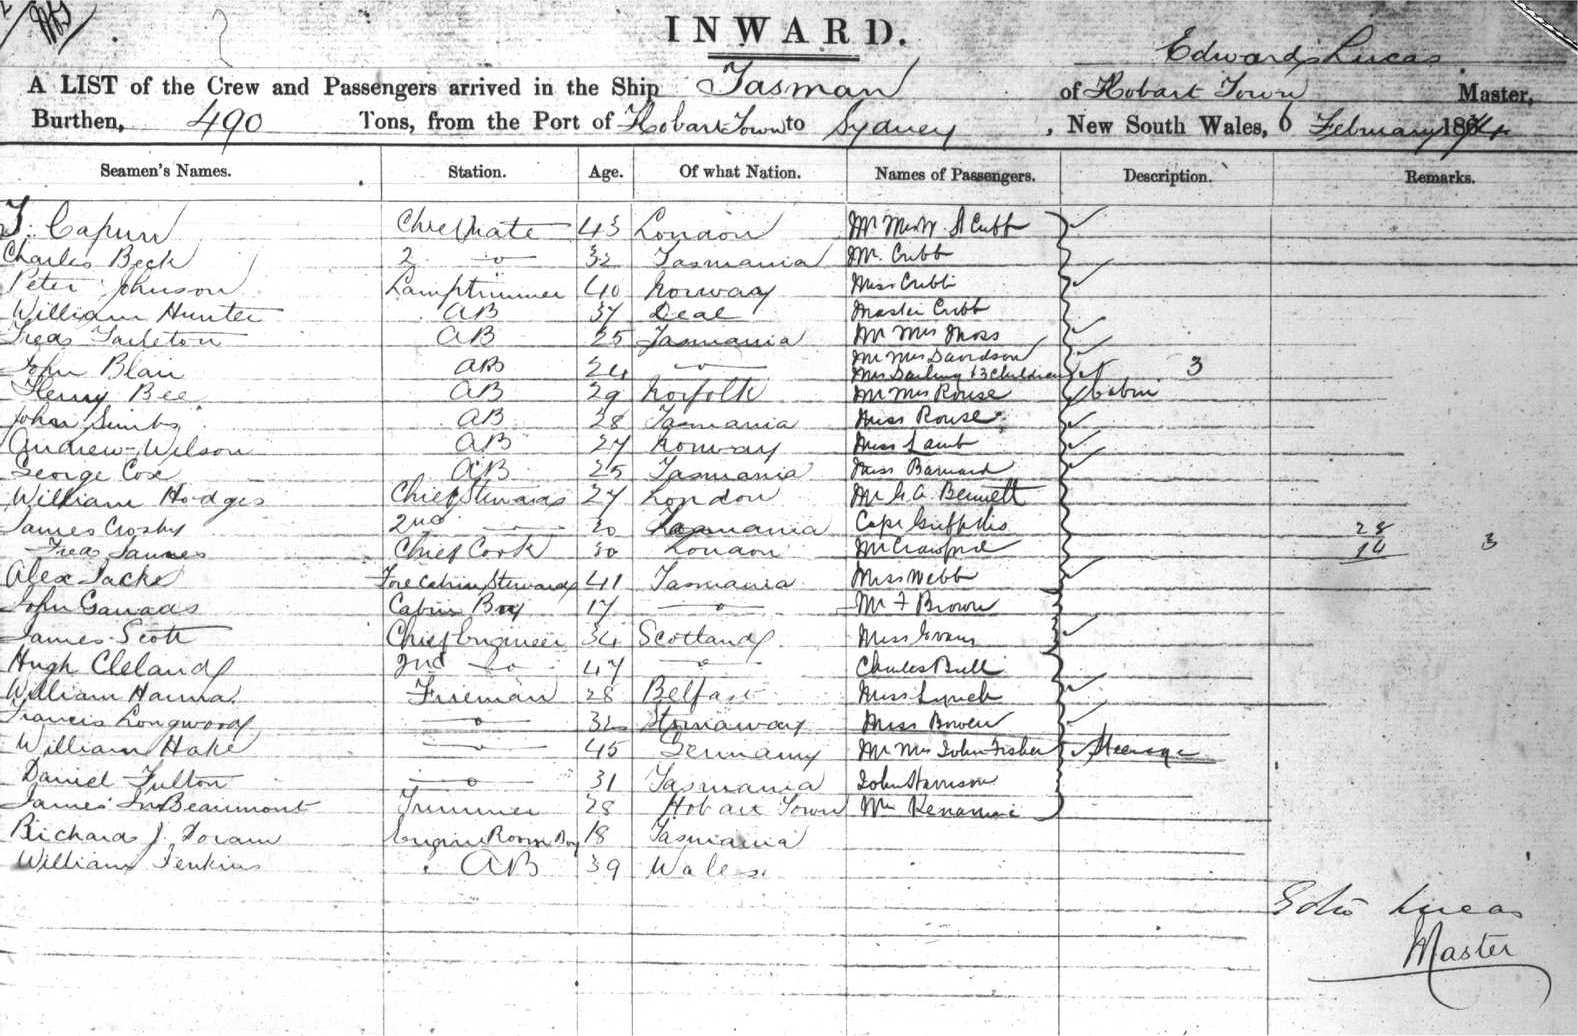 INWARD.
Edward Lucas
A LIST of the Crew and Passengers arrived in the Ship Tasman of Hobart Town Master,
Burthen, 490 Tons, from the Port of Hobart Town to Sydney, New South Wales, 6 February 1874
Seamen's Names. Station. Age. Of what Nation. Names of Passengers. Description. Remarks.
T. Capurn Chief Mate 43 London Mr Mrs W. Cubb
Charles Beck 2 do 32 Tasmania Mr. Cubb
Peter Johnson Lamptrimmer 40 Norway Miss Cubb
William Hunter AB 37 Deal Master Cubb
Fredk Tarleton AB 25 Tasmania Mr Mrs Moss
Mr Mrs Davidson
John Blair AB 24 do Mrs Darling & 3 Children 3
Henry Bee AB 29 Norfolk Mr Mrs Rouse Cabin
John AB 28 Tasmania Miss Rouse
Andrew Wilson AB 27 Norway Miss Lamb
George Cox AB 25 Tasmania Miss Barnard
William Hodges Chief Steward 27 London Mr G. A. Bennett
James Crosby 2nd 20 Tasmania Capt Griffiths 28
Fredk James Chief Cook 30 London Mr Crawford 14 3
Alex Jacks Fore Cabin Steward 41 Tasmania Miss Webb
John Cabin Boy 17 do Mr F Brown
James Scott Chief Engineer 34 Scotland Miss Evans
Hugh Cleland 2nd do 47 do Charles Bull
William Hanna Fireman 28 Belfast Miss Lynch
Francis Longwood do 32 Stornaway Miss Bowen
William Hake 45 Germany Mr Mrs John Fisher Steerage
Daniel Fulton do 31 Tasmania John Harrison
James Beaumont Trimmer 28 Hobart Town Mr
Richard J. Doran Engine Room Boy 18 Tasmania
William Jenkins AB 39 Wales
Edwd Lucas
Master